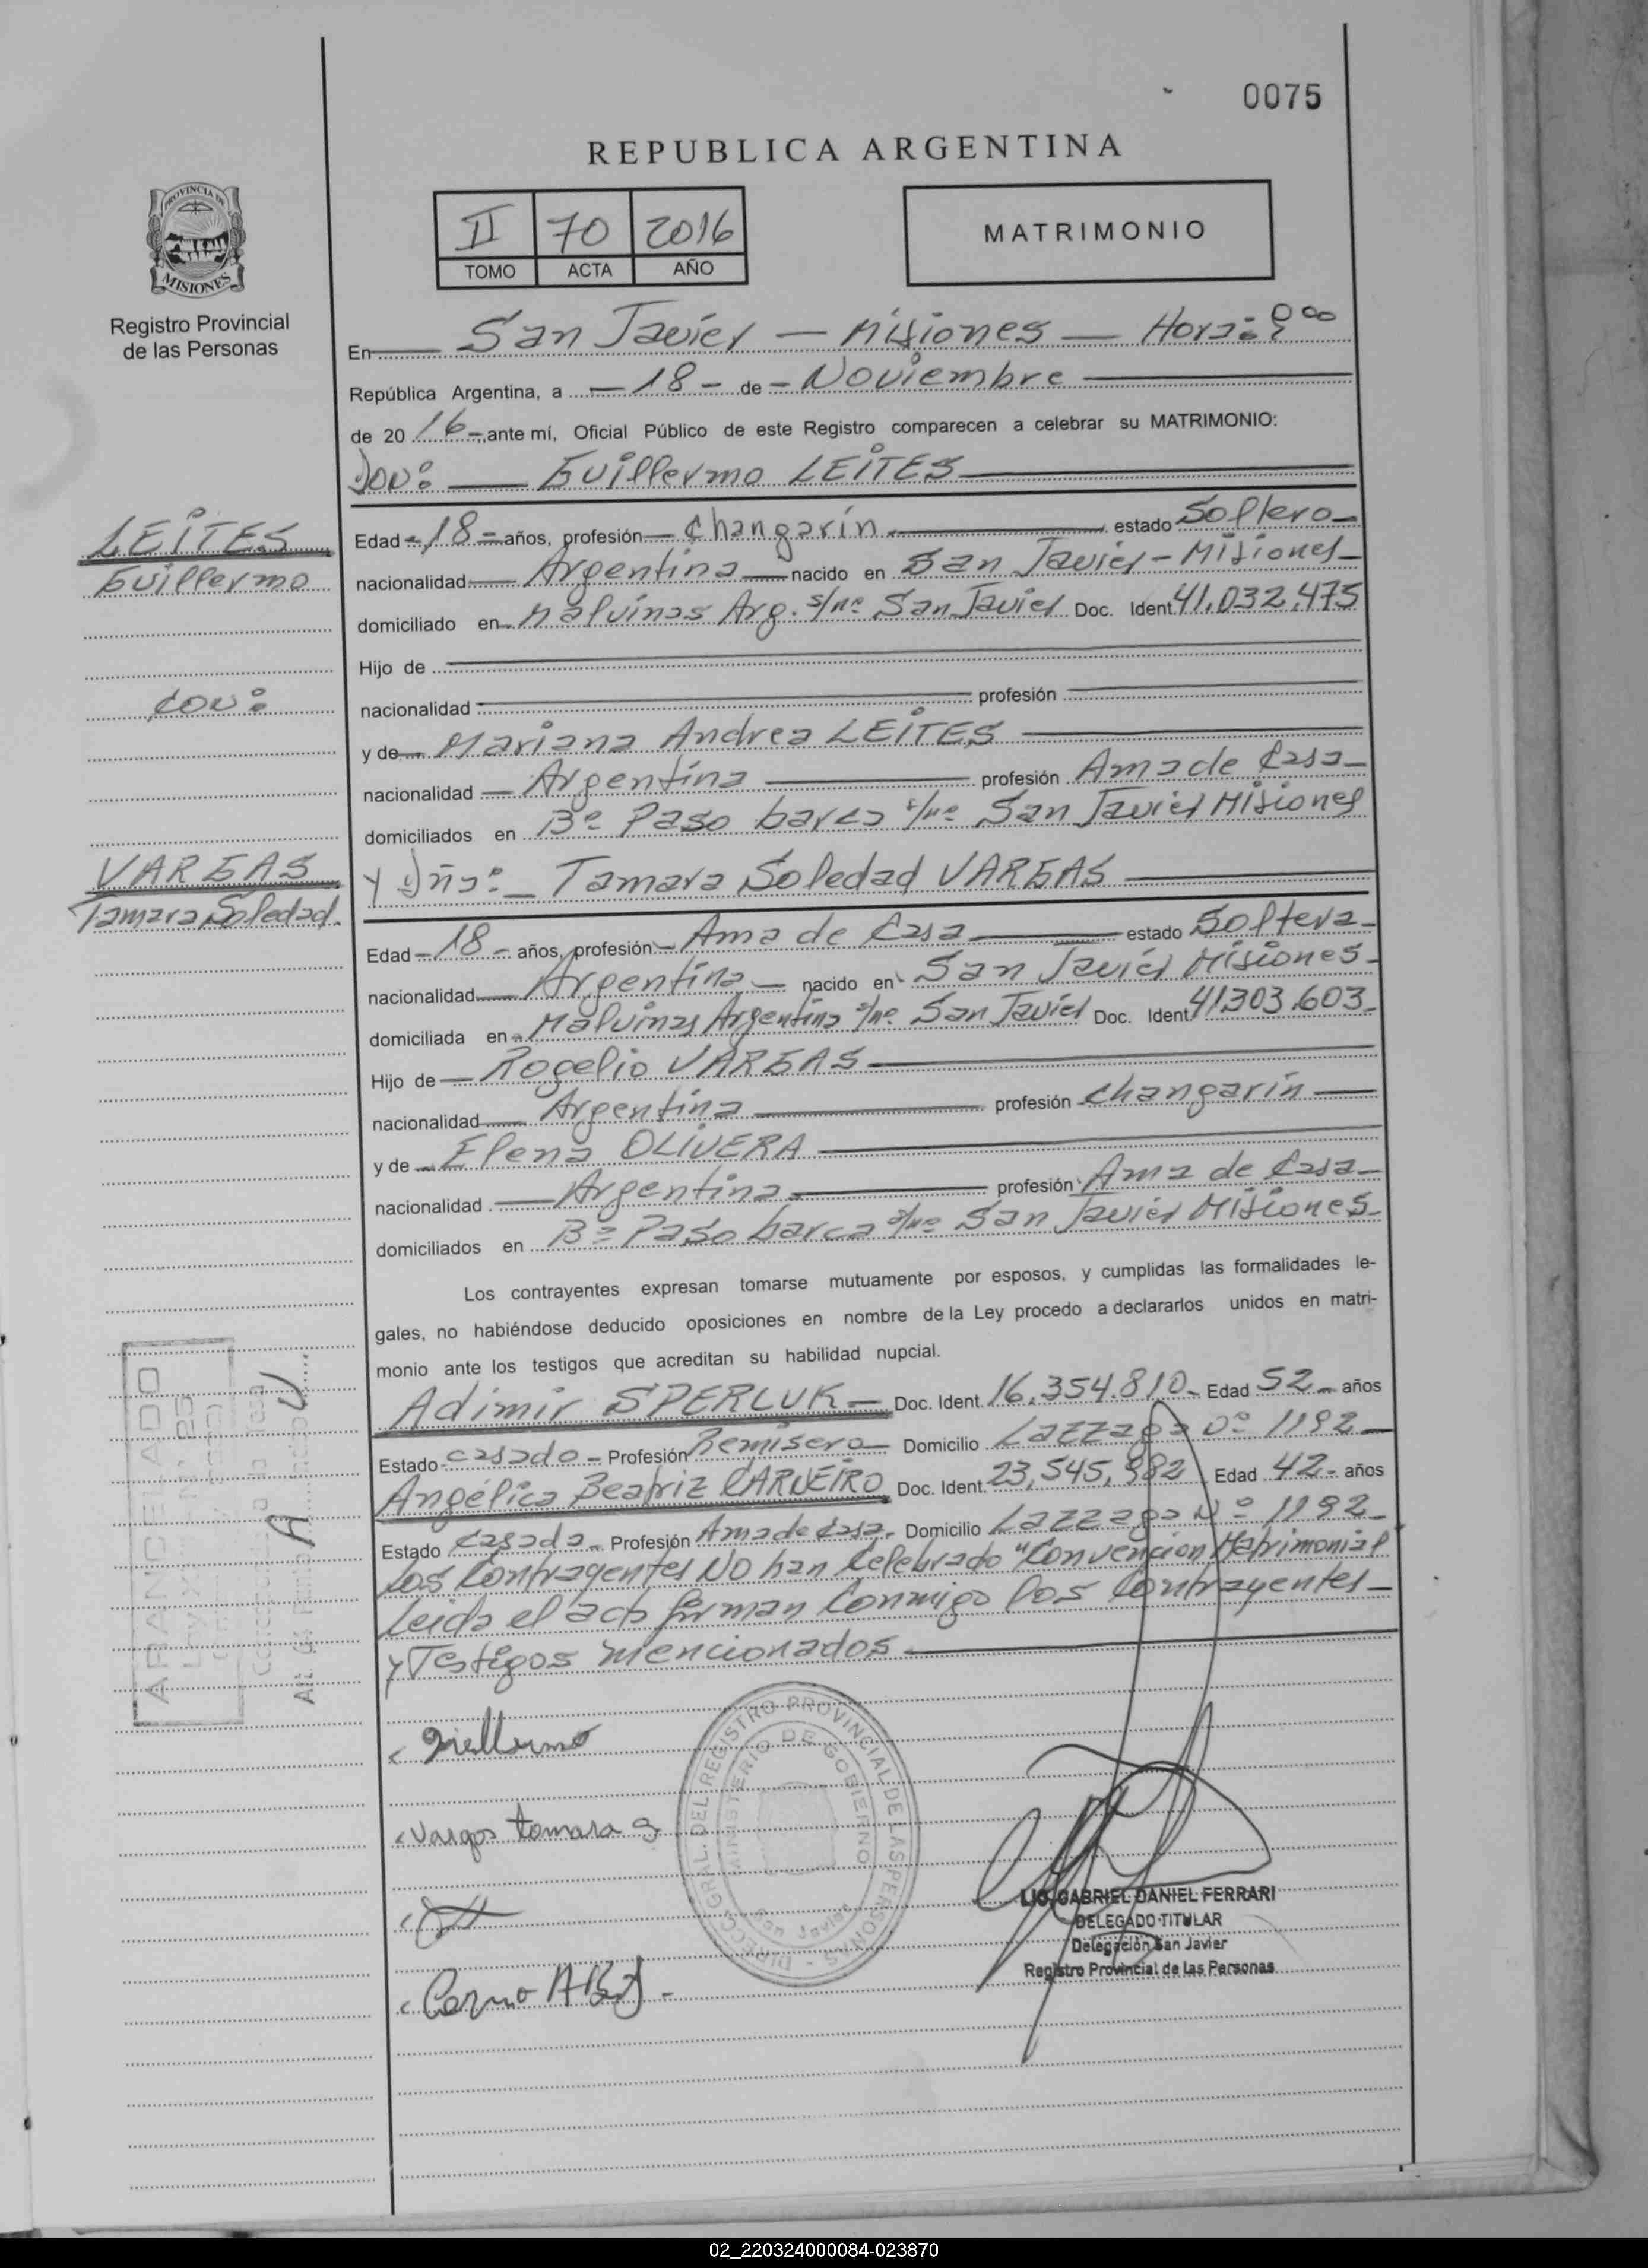 0075
REPUBLICA ARGENTINA
II 70 2016
TOMO ACTA AÑO
MATRIMONIO
PROVINCIA DE
MISIONES
Registro Provincial
de las Personas
En San Javier — Misiones — Hora:
República Argentina, a — 18 - de - Noviembre
de 20 16 -, ante mí, Oficial Público de este Registro comparecen a celebrar su MATRIMONIO:
Don: — Guillermo LEITES
LEITES
Guillermo
con:
VARGAS
Tamara Soledad.
Edad - 18 - años, profesión - Changarín. estado Soltero -
nacionalidad - Argentina - nacido en San Javier - Misiones -
domiciliado en - Malvinas Arg. s/nº San Javier Doc. Ident. 41.032.475
Hijo de
nacionalidad profesión
y de - Mariana Andrea LEITES
nacionalidad - Argentina profesión Ama de Casa -
domiciliados en Bº Paso barca s/nº San Javier Misiones
Y Dña: - Tamara Soledad VARGAS
Edad - 18 - años, profesión - Ama de Casa estado Soltera -
nacionalidad - Argentina - nacido en San Javier Misiones -
domiciliada en - Malvinas Argentina s/nº San Javier Doc. Ident. 41.303.603 -
Hijo de - Rogelio VARGAS
nacionalidad - Argentina profesión - Changarín -
y de - Elena OLIVERA
nacionalidad - Argentina - profesión - Ama de Casa -
domiciliados en Bº Paso barca s/nº San Javier Misiones -
Los contrayentes expresan tomarse mutuamente por esposos, y cumplidas las formalidades le-
gales, no habiéndose deducido oposiciones en nombre de la Ley procedo a declararlos unidos en matri-
monio ante los testigos que acreditan su habilidad nupcial.
Adimir SPERLUK - Doc. Ident. 16.354.810 - Edad 52 - años
Estado - casado - Profesión Remisero - Domicilio Lazzaga Nº 1192 -
Angélica Beatriz CARNEIRO Doc. Ident. 23,545,982 Edad 42 - años
Estado Casada - Profesión Ama de Casa - Domicilio Lazzaga Nº 1192 -
Los Contrayentes NO han Celebrado "Convención Matrimonial"
Leida el acta firman Conmigo los Contrayentes -
y Testigos mencionados
ARANCELADO
Guillermo
Vargas tamara S
DIRECC. GRAL. DEL REGISTRO PROVINCIAL DE LAS PERSONAS
MINISTERIO DE GOBIERNO
San Javier
LIC. GABRIEL DANIEL FERRARI
DELEGADO TITULAR
Delegación San Javier
Registro Provincial de Las Personas
02_220324000084-023870